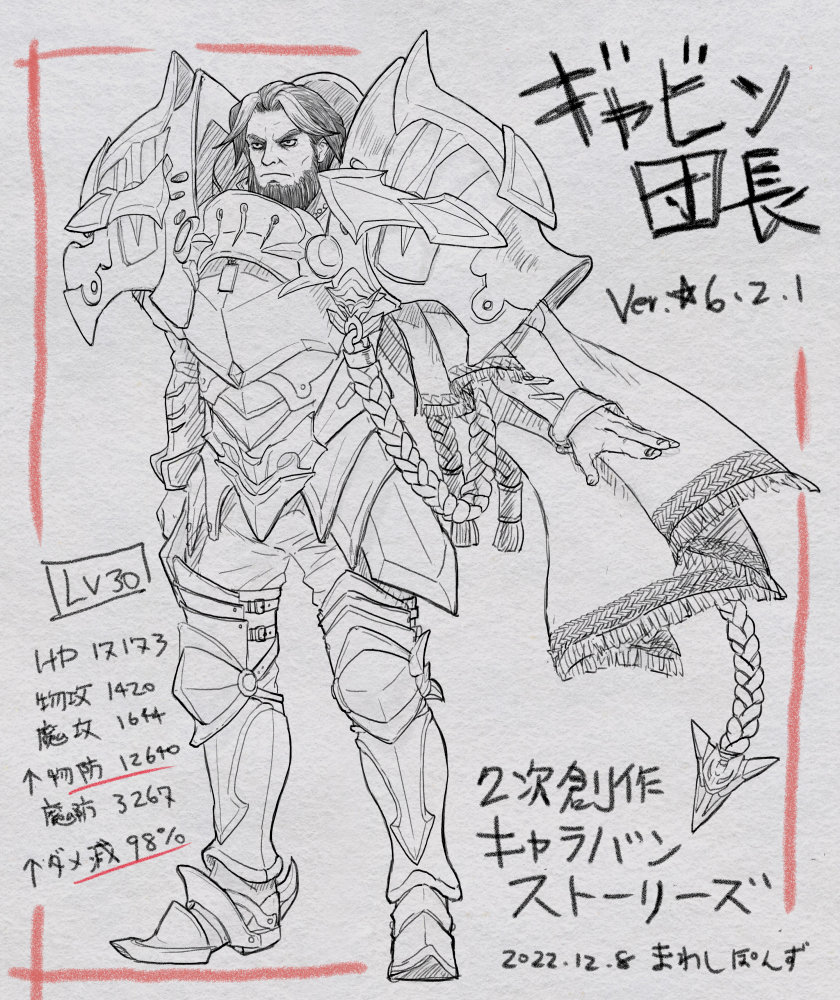 ギャビン
団長
Ver.★6.2.1
LV30
HP 17173
物攻 1420
魔攻 1644
↑物防 12640
魔防 3267
↑ダメ減 98%
2次創作
キャラバン
ストーリーズ
2022.12.8 まわしぽんず